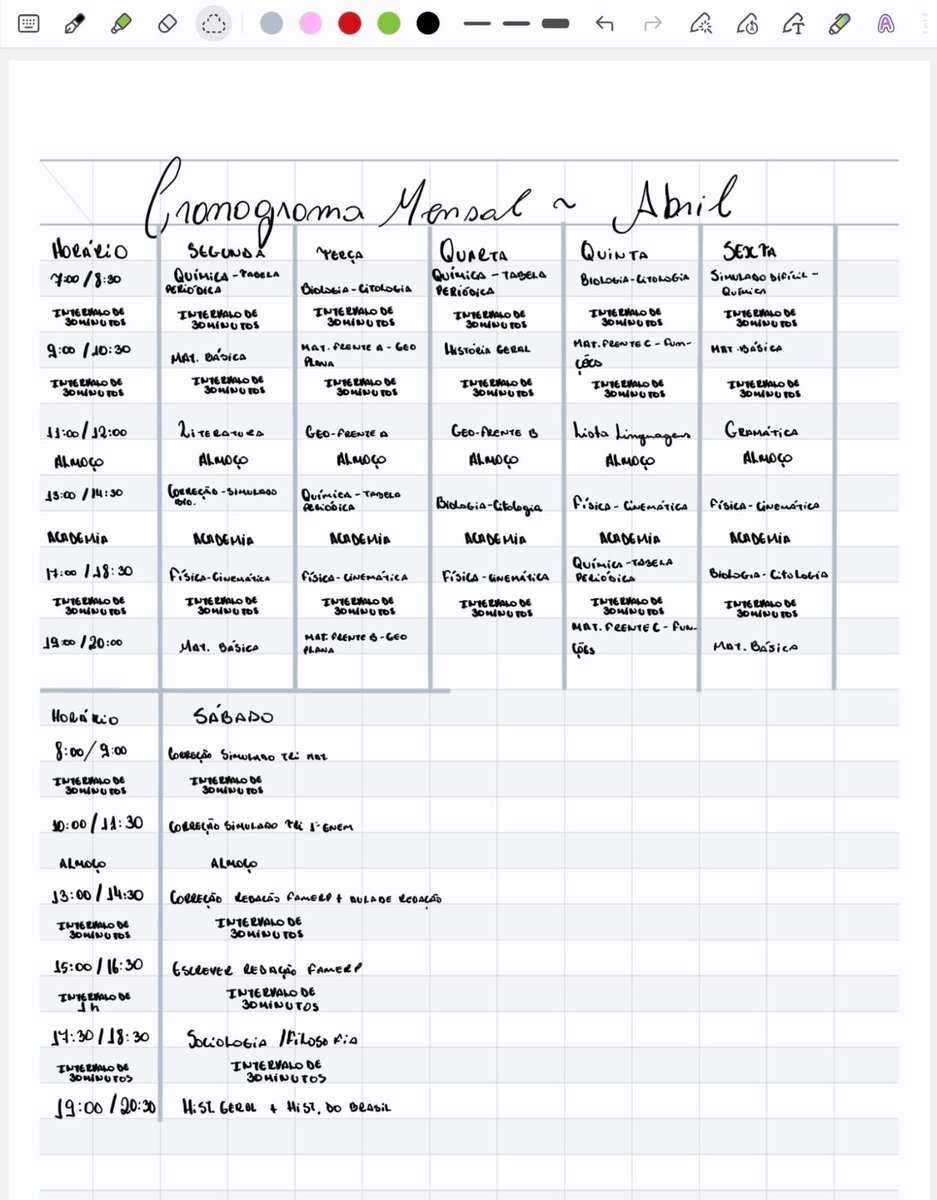 Cronograma Mensal ~ Abril
HORÁRIO SEGUNDA TERÇA QUARTA QUINTA SEXTA
7:00 / 8:30 QUÍMICA - TABELA PERIÓDICA BIOLOGIA - CITOLOGIA QUÍMICA - TABELA PERIÓDICA BIOLOGIA - CITOLOGIA SIMULADO DIFÍCIL - QUÍMICA
INTERVALO DE 30 MINUTOS INTERVALO DE 30 MINUTOS INTERVALO DE 30 MINUTOS INTERVALO DE 30 MINUTOS INTERVALO DE 30 MINUTOS INTERVALO DE 30 MINUTOS
9:00 / 10:30 MAT. BÁSICA MAT. FRENTE A - GEO PLANA HISTÓRIA GERAL MAT. FRENTE C - FUNÇÕES MAT. BÁSICA
INTERVALO DE 30 MINUTOS INTERVALO DE 30 MINUTOS INTERVALO DE 30 MINUTOS INTERVALO DE 30 MINUTOS INTERVALO DE 30 MINUTOS INTERVALO DE 30 MINUTOS
11:00 / 12:00 LITERATURA GEO - FRENTE A GEO - FRENTE B Lista Linguagens GRAMÁTICA
ALMOÇO ALMOÇO ALMOÇO ALMOÇO ALMOÇO ALMOÇO
13:00 / 14:30 CORREÇÃO - SIMULADO BIO. QUÍMICA - TABELA PERIÓDICA BIOLOGIA - CITOLOGIA FÍSICA - CINEMÁTICA FÍSICA - CINEMÁTICA
ACADEMIA ACADEMIA ACADEMIA ACADEMIA ACADEMIA ACADEMIA
17:00 / 18:30 FÍSICA - CINEMÁTICA FÍSICA - CINEMÁTICA FÍSICA - CINEMÁTICA QUÍMICA - TABELA PERIÓDICA BIOLOGIA - CITOLOGIA
INTERVALO DE 30 MINUTOS INTERVALO DE 30 MINUTOS INTERVALO DE 30 MINUTOS INTERVALO DE 30 MINUTOS INTERVALO DE 30 MINUTOS INTERVALO DE 30 MINUTOS
19:00 / 20:00 MAT. BÁSICA MAT. FRENTE B - GEO PLANA MAT. FRENTE C - FUNÇÕES MAT. BÁSICA
HORÁRIO SÁBADO
8:00 / 9:00 CORREÇÃO SIMULADO TRI MAT
INTERVALO DE 30 MINUTOS INTERVALO DE 30 MINUTOS
10:00 / 11:30 CORREÇÃO SIMULADO TRI 1° ENEM
ALMOÇO ALMOÇO
13:00 / 14:30 CORREÇÃO REDAÇÃO FAMERP + AULA DE REDAÇÃO
INTERVALO DE 30 MINUTOS INTERVALO DE 30 MINUTOS
15:00 / 16:30 ESCREVER REDAÇÃO FAMERP
INTERVALO DE 1h INTERVALO DE 30 MINUTOS
17:30 / 18:30 SOCIOLOGIA / FILOSOFIA
INTERVALO DE 30 MINUTOS INTERVALO DE 30 MINUTOS
19:00 / 20:30 HIST. GERAL + HIST. DO BRASIL